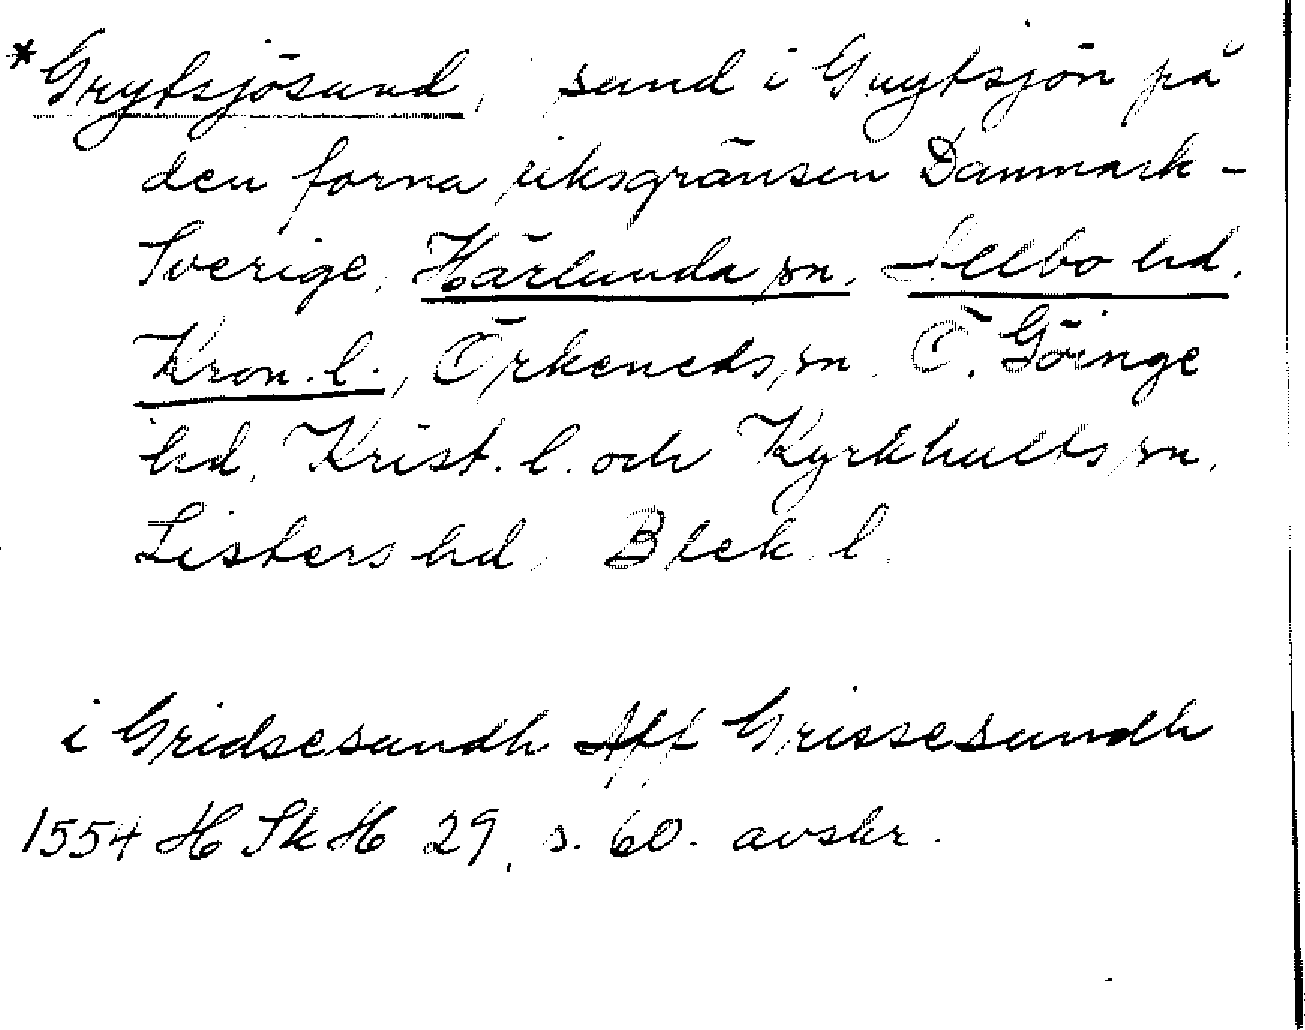 *Grytsjösund, sund i Grytsjön på
den forna riksgränsen Danmark -
Sverige, Härlunda sn, Allbo hd.
Kron. l., Örkeneds sn. Ö. Göinge
hd, Krist. l. och Kyrkhults sn.
Listers hd, Blek. l.
i Gridsesundh Aff Grissesundh
1554 HSkH 29, s. 60. avskr.